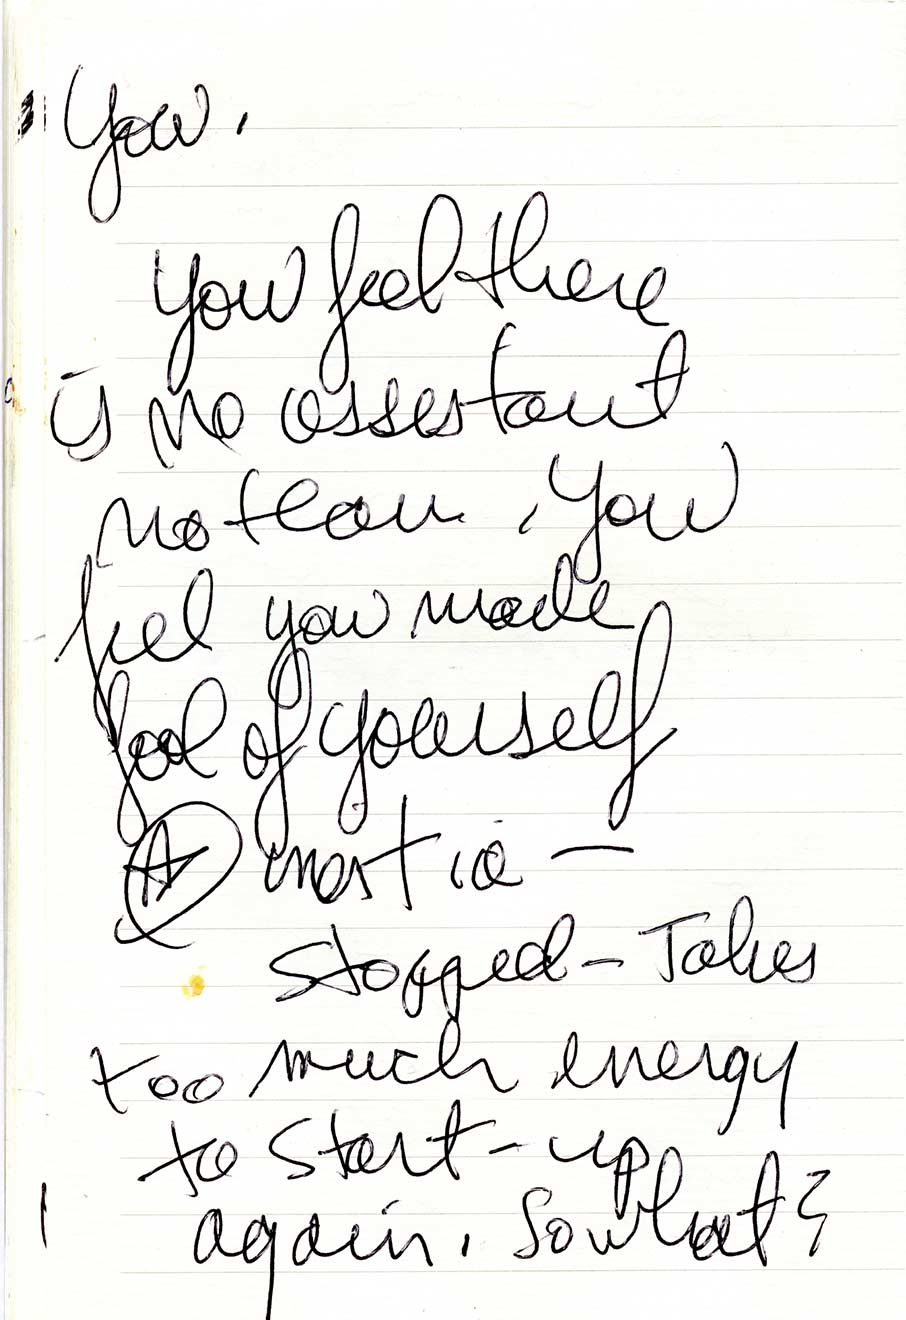 You.
You feel there
is no assestant
no team. You
feel you made
fool of yourself
A most ia –
stopped – Takes
too much energy
to start-up
again. So what?